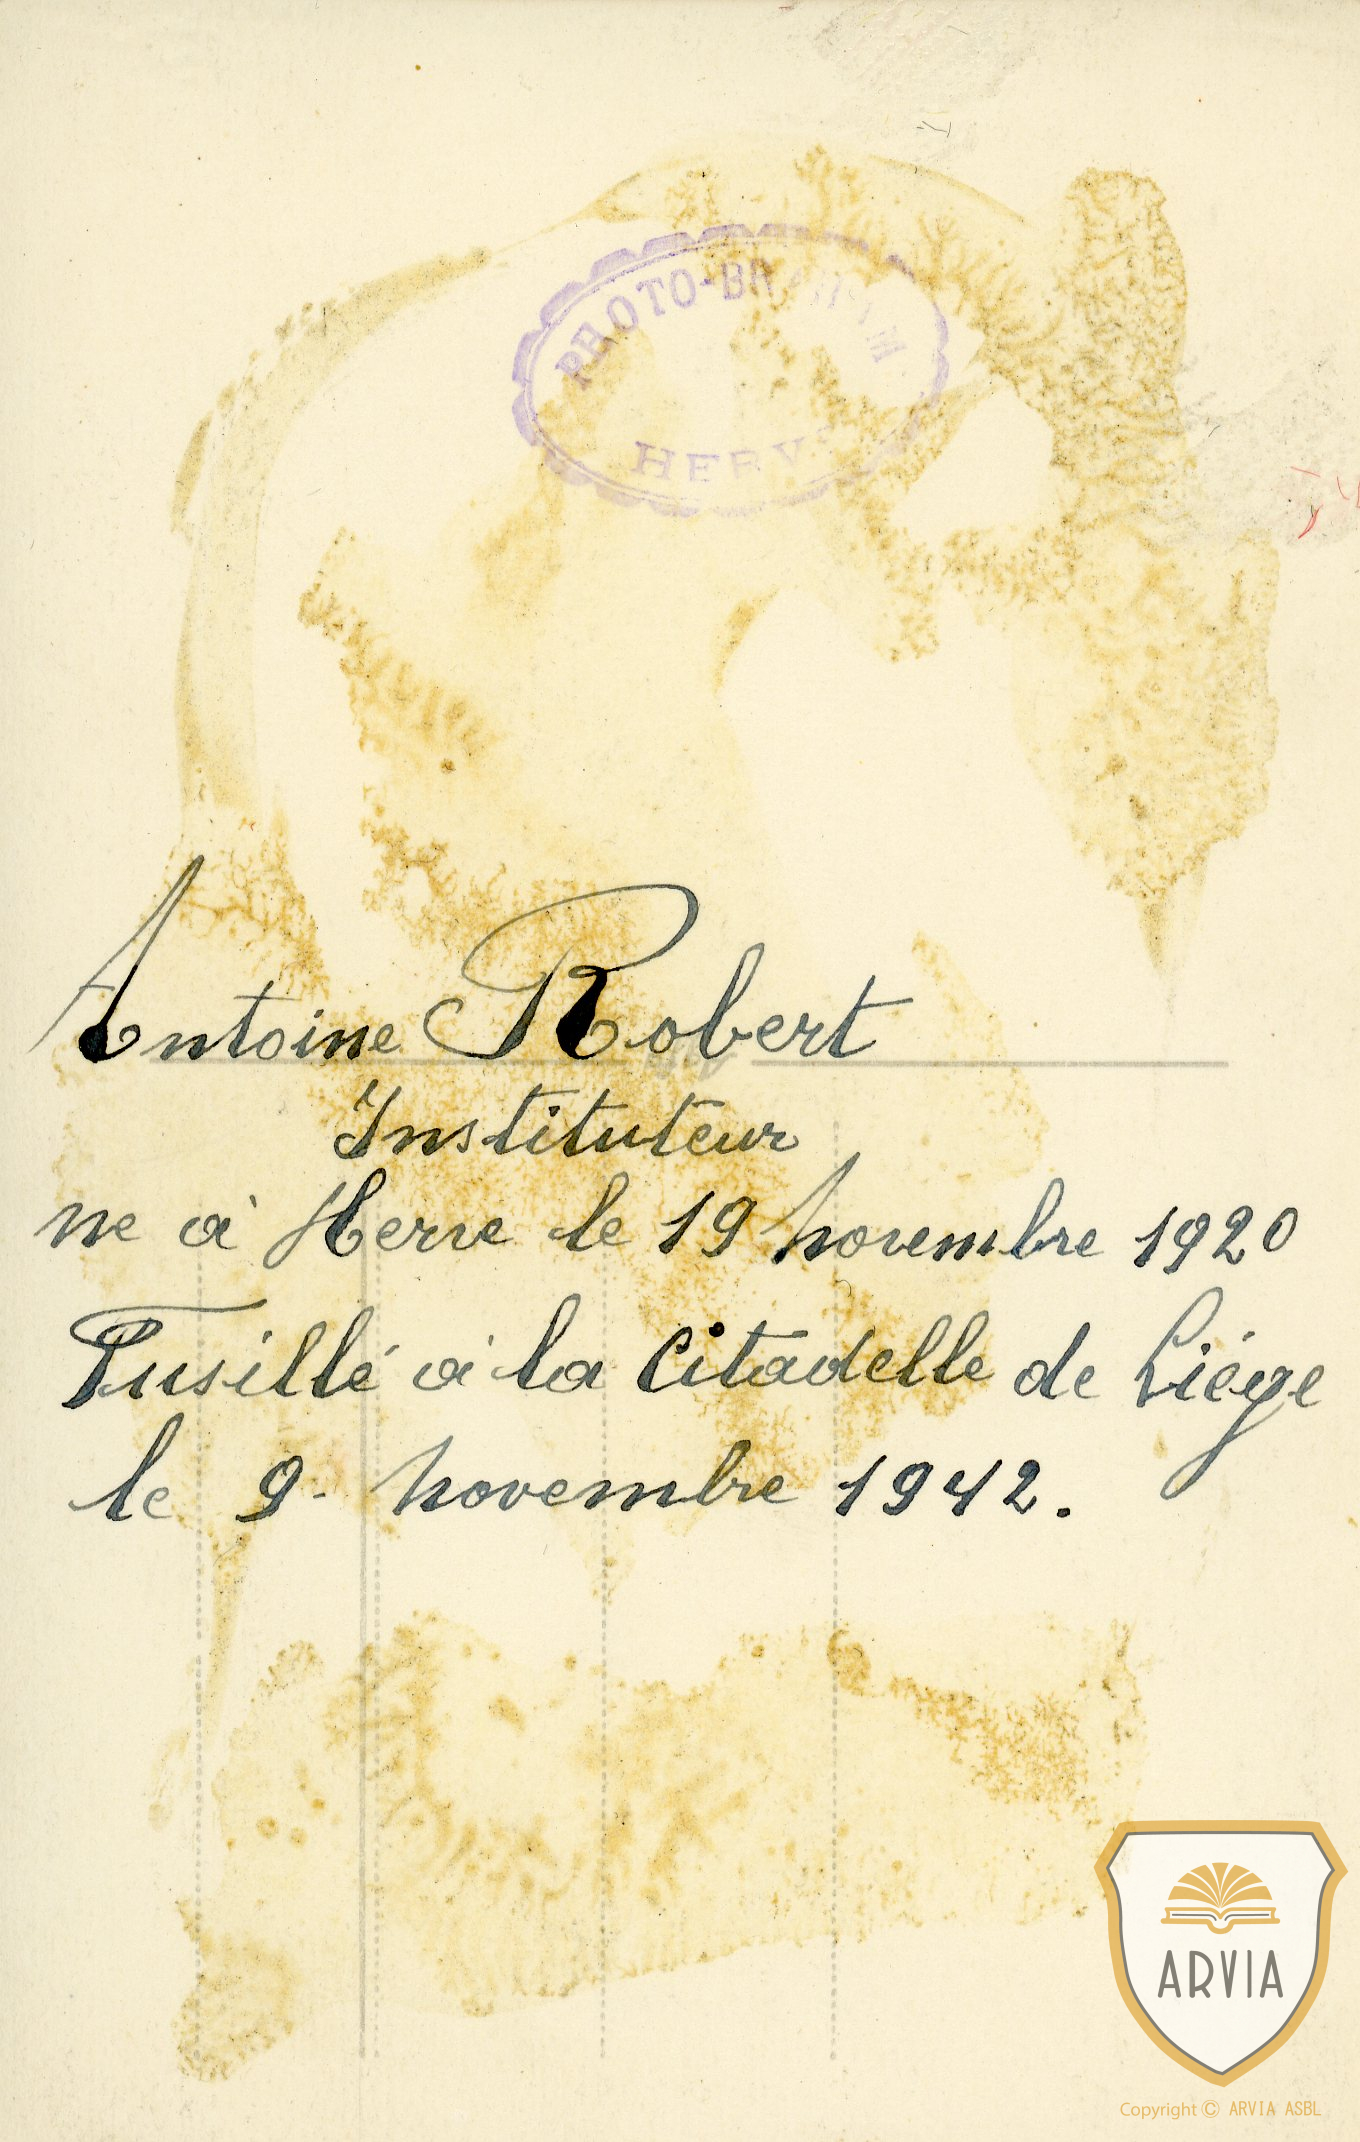 HERVE
Antoine Robert
Instituteur
ne à Herve le 19 novembre 1920
Fusillé à la Citadelle de Liége
le 9. novembre 1942.
ARVIA
Copyright © ARVIA ASBL